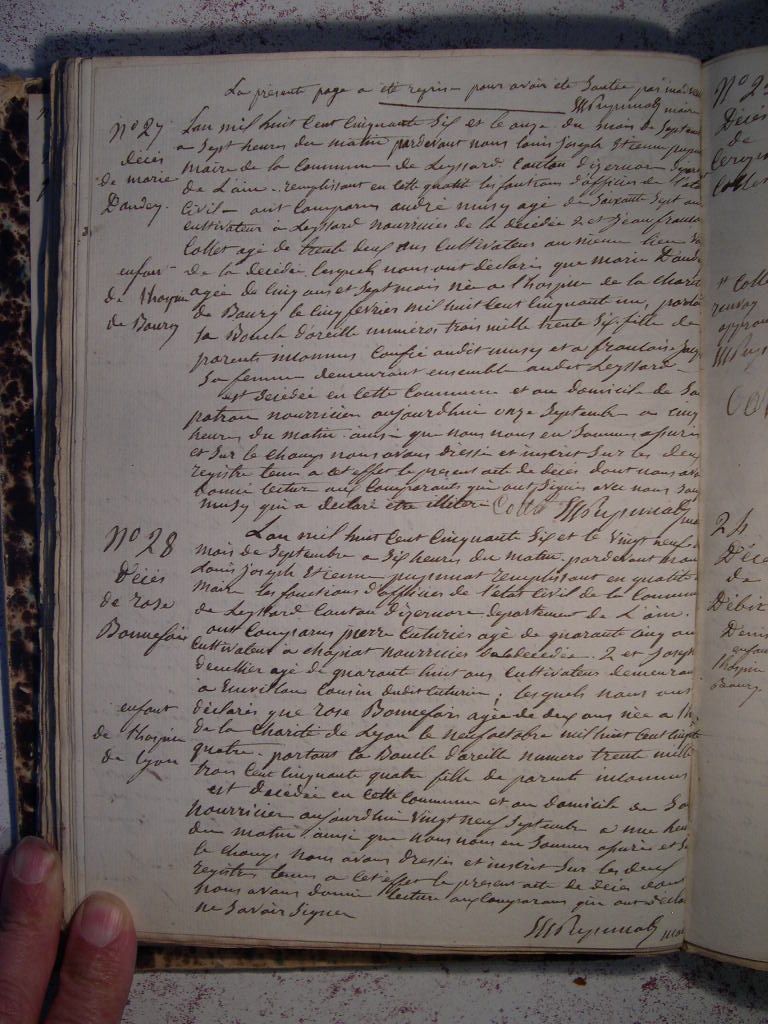 La présente page a été reprise pour avoir été sautée par
maire
N° 27
décès
de marie
Dandey
enfant
de l'hospice
de Bourg
Lan mil huit Cent Cinquante Six et le onze du mois de Septembre
a Sept heures du matin pardevant nous Louis Joseph Etienne
maire de la Commune de Leyssard Canton d'izernore
de L'ain. remplissant en cette qualité les fonctions d'officier de l'etat
Civil - ont Comparus andré musy agé de Soixante Sept ans
Cultivateur a Leyssard nourricier de la décédée 2 et jean françois
Collet agé de trente deux ans Cultivateur au même lieu
de la décédée, lesquels nous ont déclarés que marie Dandey
agée de Cinq ans et Sept mois née a l'hospice de la charité
de Bourg le Cinq fevrier mil huit Cent Cinquante un, portant
la Boucle d'oreille numéros trois mille trente Six fille de
parents inconnus Confié audit musy et a françoise
Sa femme demeurant ensemble audit Leyssard -
est décédée en Cette Commune et au domicile de Son
patron nourricier aujourdhui onze Septembre a Cinq
heures du matin ainsi que nous nous en Sommes assurés
et Sur le champ nous avons dressé et inscrit Sur les deux
registres tenus a cet effet le présent acte de décès dont nous avons
donné lecture aux Comparants qui ont Signés avec nous Sauf
musy qui a déclaré être illitéré Collet
N° 28
Décès
de rose
Bonnefois
enfant
de l'hospice
de Lyon
Lan mil huit Cent Cinquante Six et le Vingt neuf
mois de Septembre a Six heures du matin. pardevant nous
Louis joseph Etienne remplissant en qualité
maire les fonctions d'officier de l'état Civil de la Commune
de Leyssard Canton d'izernore departement de L'ain.
ont Comparus pierre Cuturier agé de quarante Cinq ans
Cultivateur a nourricier de la decedée. 2 et joseph
agé de quarante huit ans Cultivateur demeurant
a Cousin dudit Cuturier ; lesquels nous ont
déclarés que rose Bonnefois agée de deux ans née a l'h.
de la Charité de Lyon le neuf octobre mil huit Cent Cinquante
quatre. portant la Boucle d'oreille numero trente mille
trois Cent Cinquante quatre fille de parents inconnus
est décédée en Cette Commune et au domicile de Son
nourricier aujourdhui Vingt neuf Septembre a une heure
du matin ainsi que nous nous en Sommes assurés et Sur
le champ nous avons dressés et inscrit Sur les deux
registres tenus a cet effet le présent acte de décès dont
nous avons donné lecture aux Comparans qui ont déclaré
ne Savoir Signer
Décès
de
Collet
Décès
de